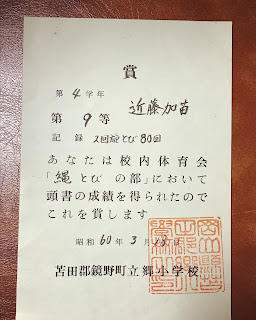 賞
第4学年
近藤加苗
第9等
記録 2回旋とび80回
あなたは校内体育会
「縄とびの部」において
頭書の成績を得られたので
これを賞します
昭和60年3月 日
苫田郡鏡野町立郷小学校